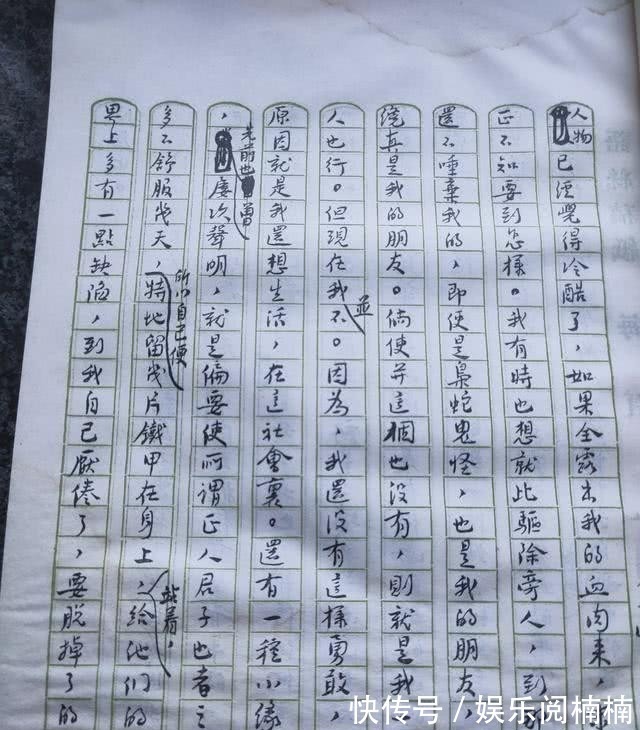 人物已經覺得冷酷了，如果全露出我的血肉來，
正不知要到怎樣。我有時也想就此驅除旁人，到那
還不唾棄我的，即使是梟蛇鬼怪，也是我的朋友，
纔真是我的朋友。倘使并這個也沒有，則就是我
人也行。但現在我並不。因為，我還沒有這樣勇敢，
原因就是我還想生活，在這社會裏。還有一種小緣
，先前也曾屢次聲明，就是偏要使所謂正人君子也者之
多不舒服幾天，所以自己便特地留幾片鐵甲在身上，站着，給他們的
界上多有一點缺陷，到我自己厭倦了，要脫掉了的
快传号／娱乐阅楠楠